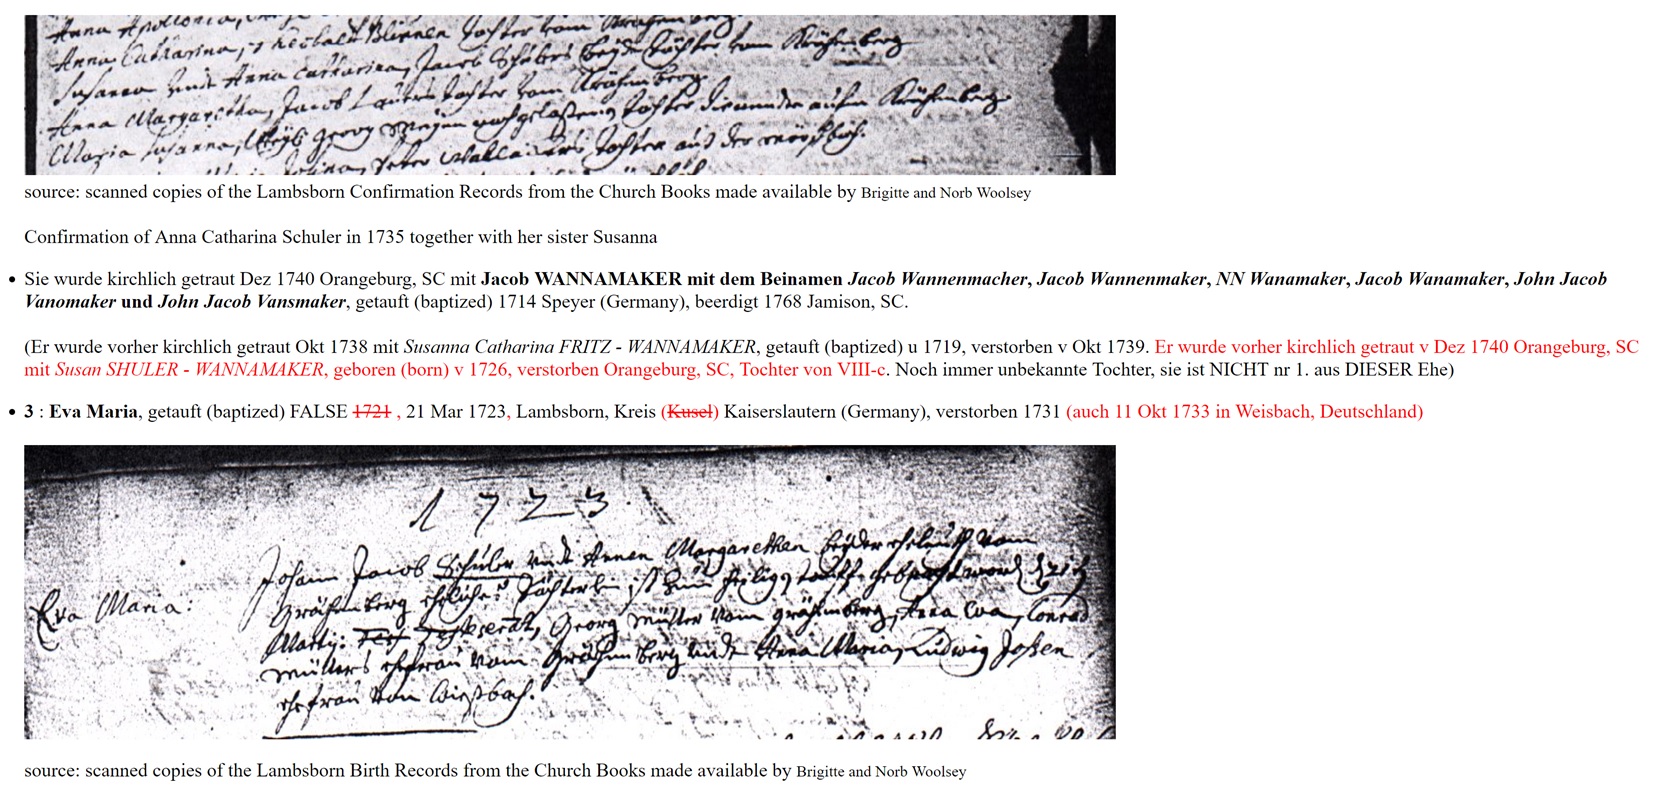 Anna Apollonia,
Anna Catharina, Tochter vom
Susanna undt Anna Catharina, Jacob Schülers beyde Töchter vom Krähenberg
Anna Margaretha, Jacob Lauers Tochter vom Krähenberg.
Maria Susanna, Georg nachgelaßene Tochter auffm Krähenberg.
Peter Tochter auß der
source: scanned copies of the Lambsborn Confirmation Records from the Church Books made available by Brigitte and Norb Woolsey
Confirmation of Anna Catharina Schuler in 1735 together with her sister Susanna
• Sie wurde kirchlich getraut Dez 1740 Orangeburg, SC mit Jacob WANNAMAKER mit dem Beinamen Jacob Wannenmacher, Jacob Wannenmaker, NN Wanamaker, Jacob Wanamaker, John Jacob
Vanomaker und John Jacob Vansmaker, getauft (baptized) 1714 Speyer (Germany), beerdigt 1768 Jamison, SC.
(Er wurde vorher kirchlich getraut Okt 1738 mit Susanna Catharina FRITZ - WANNAMAKER, getauft (baptized) u 1719, verstorben v Okt 1739. Er wurde vorher kirchlich getraut v Dez 1740 Orangeburg, SC
mit Susan SHULER - WANNAMAKER, geboren (born) v 1726, verstorben Orangeburg, SC, Tochter von VIII-c. Noch immer unbekannte Tochter, sie ist NICHT nr 1. aus DIESER Ehe)
• 3 : Eva Maria, getauft (baptized) FALSE 1721 , 21 Mar 1723, Lambsborn, Kreis (Kusel) Kaiserslautern (Germany), verstorben 1731 (auch 11 Okt 1733 in Weisbach, Deutschland)
1723.
Johann Jacob Schüler undt Annen Margarethen beyder eheleuth vom
Eva Maria: Krähenberg eheliches Töchterlein ist zum heilig. tauff gebracht word. d. 21t
Martij. Georg Müller vom grähenberg, Anna Eva, Conrad
müllers ehefrau vom Grähenberg undt Anna Maria, Ludwig Joßen
ehefrau von Wießbach.
source: scanned copies of the Lambsborn Birth Records from the Church Books made available by Brigitte and Norb Woolsey